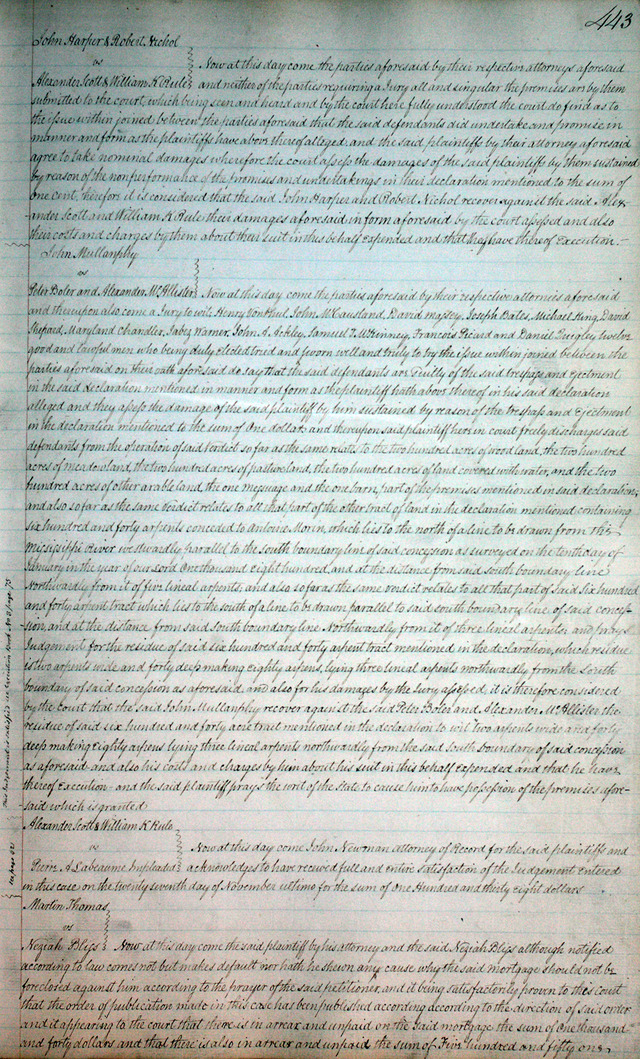 443
John Harper & Robert Nichol
vs
Now at this day come the parties aforesaid by their respective attorneys aforesaid
Alexander Scott & William K Rule and neither of the parties requiring a Jury all and singular the premises are by them
submitted to the court, which being seen and heard and by the court here fully understood the court do find as to
the issue within joined between the parties aforesaid that the said defendants did undertake and promise in
manner and form as the plaintiffs have above thereof alleged, and the said plaintiff by their attorney aforesaid
agree to take nominal damages wherefore the court assess the damages of the said plaintiff by them sustained
by reason of the nonperformance of the promises and undertakings in their declaration mentioned to the sum of
one cent, therefore it is considered that the said John Harper and Robert Nichol recover against the said Alex-
ander Scott and William K Rule their damages aforesaid in form aforesaid by the court assessed and also
their costs and charges by them about their suit in this behalf expended and that they have thereof Execution.
John Mullanphy
vs
Peter Boler and Alexander McAllester Now at this day come the parties aforesaid by their respective attornies aforesaid
and thereupon also come a Jury to wit: Henry Vonphul, John McCausland, David Massey, Joseph Bates, Michael King, David
Shepard, Maryland Chandler, Jabez Warner, John A. Ackley, Samuel T. McKinney, Francois Picard and Daniel Quigley twelve
good and lawful men who being duly elected tried and sworn well and truly to try the issue within joined between the
parties aforesaid on their oath aforesaid do say that the said defendants are Guilty of the said trespass and ejectment
in the said declaration mentioned in manner and form as the plaintiff hath above thereof in his said declaration
alleged and they assess the damage of the said plaintiff by him sustained by reason of the trespass and Ejectment
in the declaration mentioned to the sum of One dollar; and thereupon said plaintiff here in court freely discharges said
defendants from the operation of said Verdict so far as the same relates to the two hundred acres of wood land, the two hundred
acres of meadow land, the two hundred acres of pasture land, the two hundred acres of land covered with water, and the two
hundred acres of other arable land, the one message and the one barn, part of the premises mentioned in said declaration,
and also so far as the same verdict relates to all that part of the other tract of land in the declaration mentioned containing
six hundred and forty arpents conceded to Antoine Morin, which lies to the north of a line to be drawn from the
Mississippi River westwardly parallel to the south boundary line of said concession as surveyed on the tenth day of
January in the year of our Lord One thousand eight hundred, and at the distance from said south boundary line
Northwardly from it of five lineal arpents; and also so far as the same verdict relates to all that part of said six hundred
and forty arpent tract which lies to the south of a line to be drawn parallel to said south boundary line, of said conces-
sion, and at the distance from said south boundary line Northwardly from it of three lineal arpents; and prays
Judgement for the residue of said six hundred and forty arpent tract mentioned in the declaration, which residue
is two arpents wide and forty deep making eighty arpens, lying three lineal arpents northwardly from the South
boundary of said concession as aforesaid, and also for his damages by the Jury assessed, it is therefore considered
by the Court that the said John Mullanphy recover against the said Peter Boler and Alexander McAllester the
residue of said six hundred and forty acre tract mentioned in the declaration to wit two arpents wide and forty
deep making Eighty arpens lying three lineal arpents northwardly from the said south boundary of said concession
as aforesaid and also his costs and charges by him about his suit in this behalf Expended and that he have
thereof Execution - and the said plaintiff prays the writ of the state to cause him to have possession of the premises afore-
said which is granted
Alexander Scott & William K Rule
vs
Now at this day come John Newman attorney of Record for the said plaintiffs and
Pierre A Labeaume Impleaded acknowledges to have received full and entire satisfaction of the Judgement Entered
in this case on the twenty seventh day of November ultimo for the sum of One Hundred and thirty Eight dollars
Martin Thomas
vs
Neziah Bliss Now at this day come the said plaintiff by his attorney and the said Neziah Bliss although notified
according to law comes not but makes default nor hath he shewn any cause why the said mortgage should not be
foreclosed against him according to the prayer of the said petitioner, and it being satisfactorily proven to this Court
that the order of publication made in this case has been published according according to the direction of said order
and it appearing to the court that there is in arrear and unpaid on the said mortgage the sum of One thousand
and forty dollars and that there is also in arrear and unpaid the sum of Five hundred and fifty one